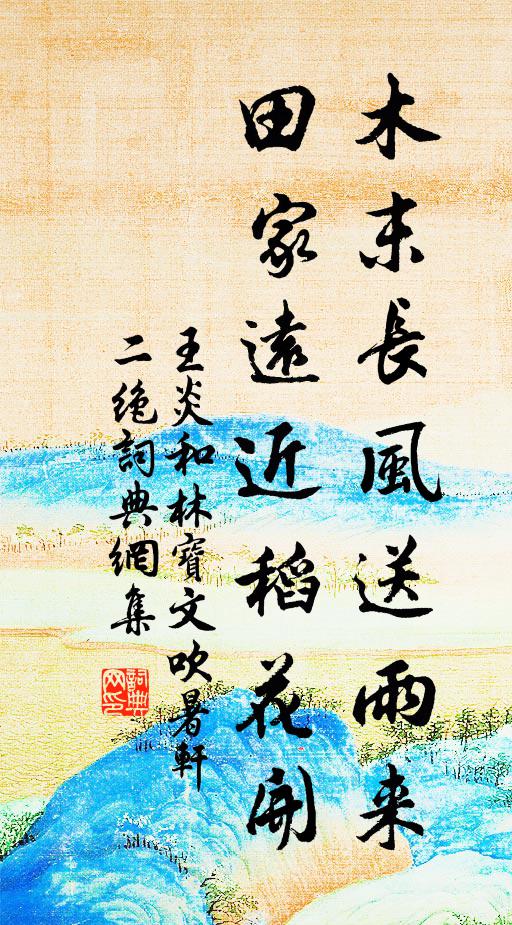 木末長風送雨来
田家遠近稻花開
王炎和林寶文吹暑軒
二絶詞典網集
詞典网印